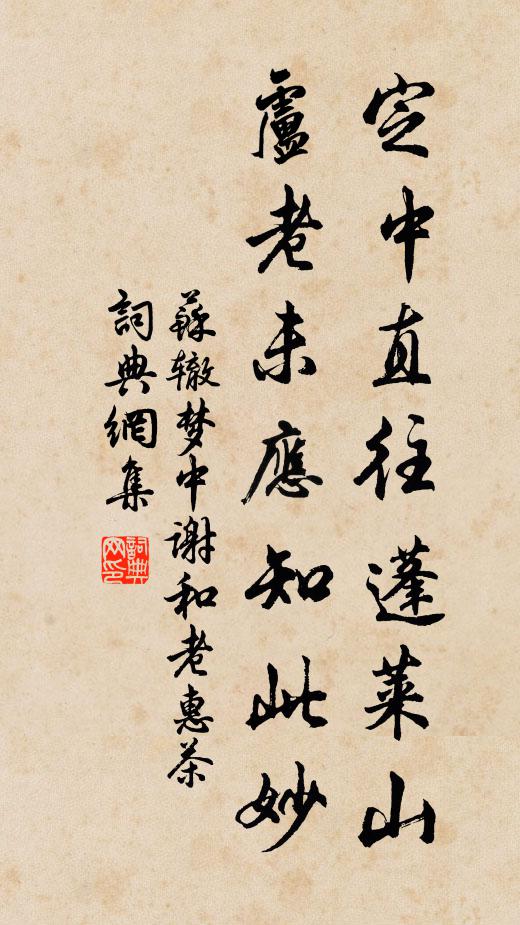 定中直往蓬莱山
盧老未應知此妙
蘇辙梦中谢和老惠茶
詞典網集
詞典
网印